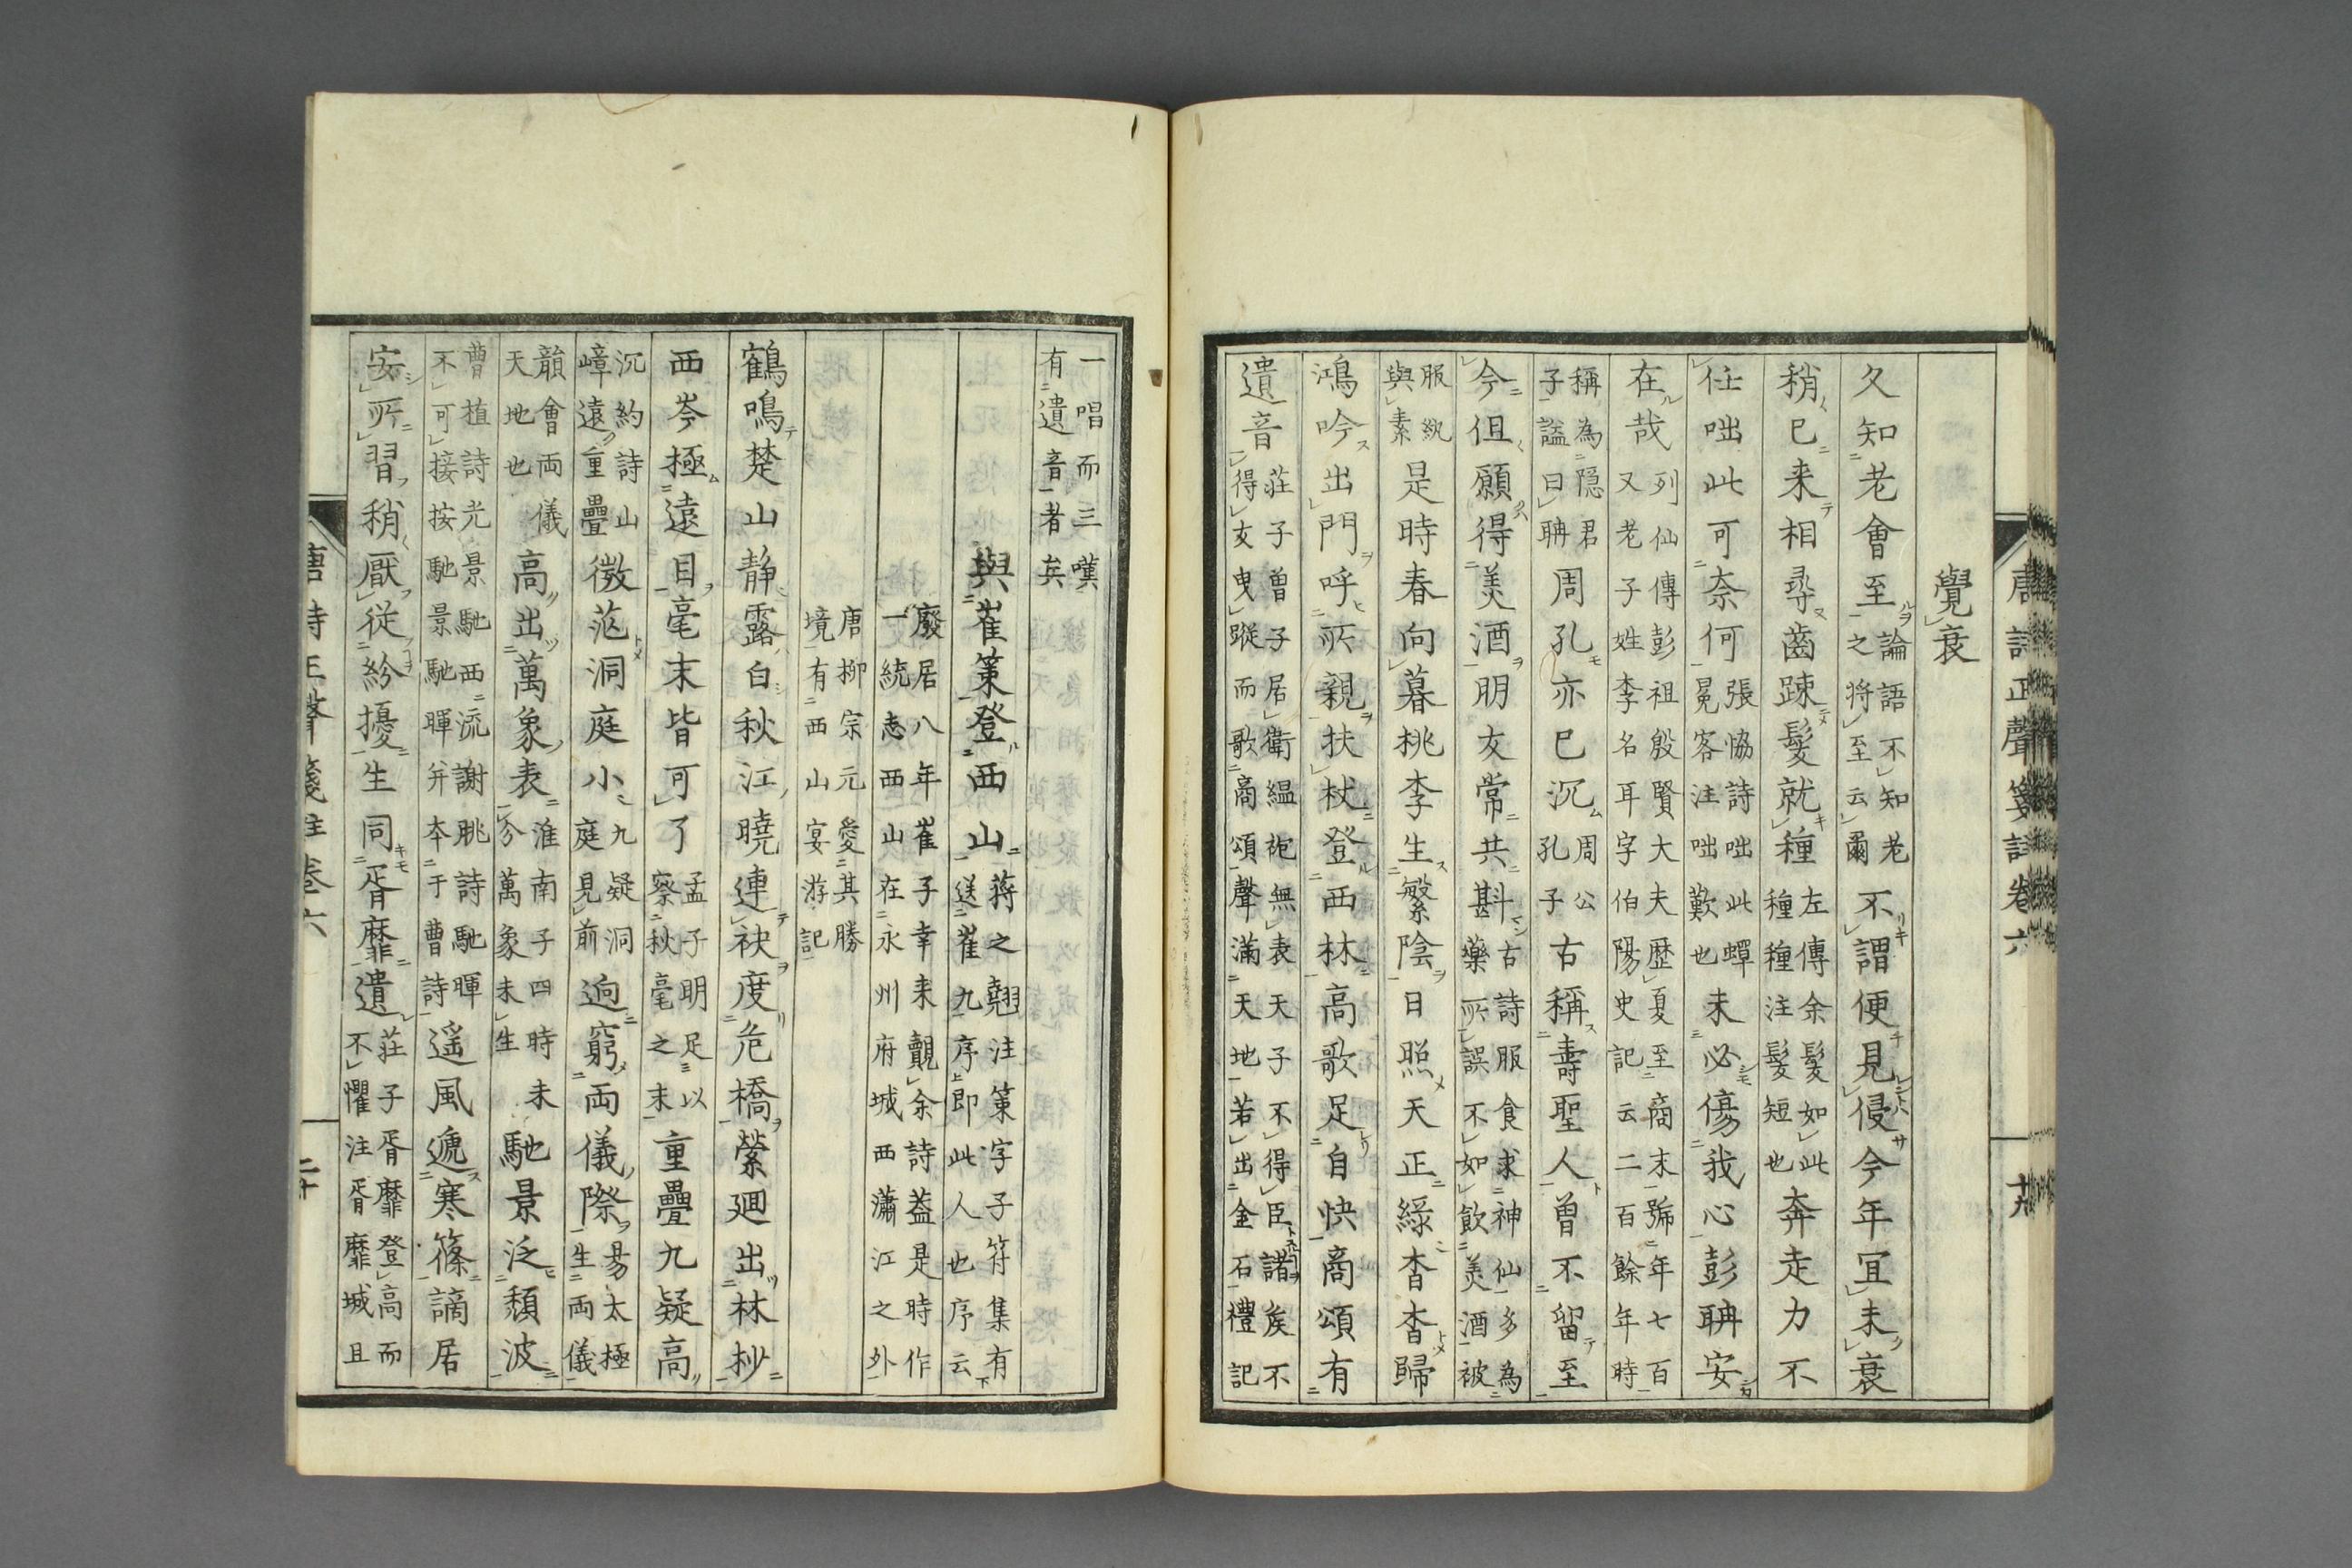 唐詩正聲箋註卷六
覺衰
久知老會至論語不知老之將至云爾不謂便見侵今年宜未衰
稍已来相尋齒踈髮就種左傳余髮如此種種注髮短也奔走力不
任咄此可奈何張協詩咄此蟬冕客注咄歎也未必傷我心彭聃安
在哉列仙傳彭祖殷賢大夫歷夏至商末號年七百又老子姓李名耳字伯陽史記云二百餘年時
稱為隠君子謚曰聃周孔亦已沉周公孔子古稱壽聖人曽不留至
今但願得美酒朋友常共斟古詩服食求神仙多為藥所誤不如飲美酒被
服紈與素是時春向暮桃李生繁陰日照天正綠杳杳歸
鴻吟出門呼所親扶杖登西林高歌足自快商頌有
遺音莊子曽子居衛緼袍無表天子不得臣諸矦不得友曳蹤而歌商頌聲滿天地若出金石禮記
一唱而三嘆有遺音者矣
與崔策登西山蔣之翹注策字子符集有送崔九序即此人也序云
廢居八年崔子幸来覿余詩葢是時作一統志西山在永州府城西瀟江之外
唐柳宗元愛其勝境有西山宴游記
鶴鳴楚山静露白秋江曉連袂度危橋縈廻出林杪
西岑極遠目毫末皆可了孟子明足以察秋毫之末重疊九疑高
沉約詩山嶂遠重疊微茫洞庭小九疑洞庭見前逈窮両儀際易太極生両儀
韻會両儀天地也高出萬象表淮南子四時未分萬象未生馳景泛頹波
曹植詩光景馳西流謝朓詩馳暉不可接按馳景馳暉并夲于曹詩遥風遞寒篠謫居
安所習稍厭從紛擾生同胥靡遺莊子胥靡登高而不懼注胥靡城且
唐詩正聲箋註卷六
二十